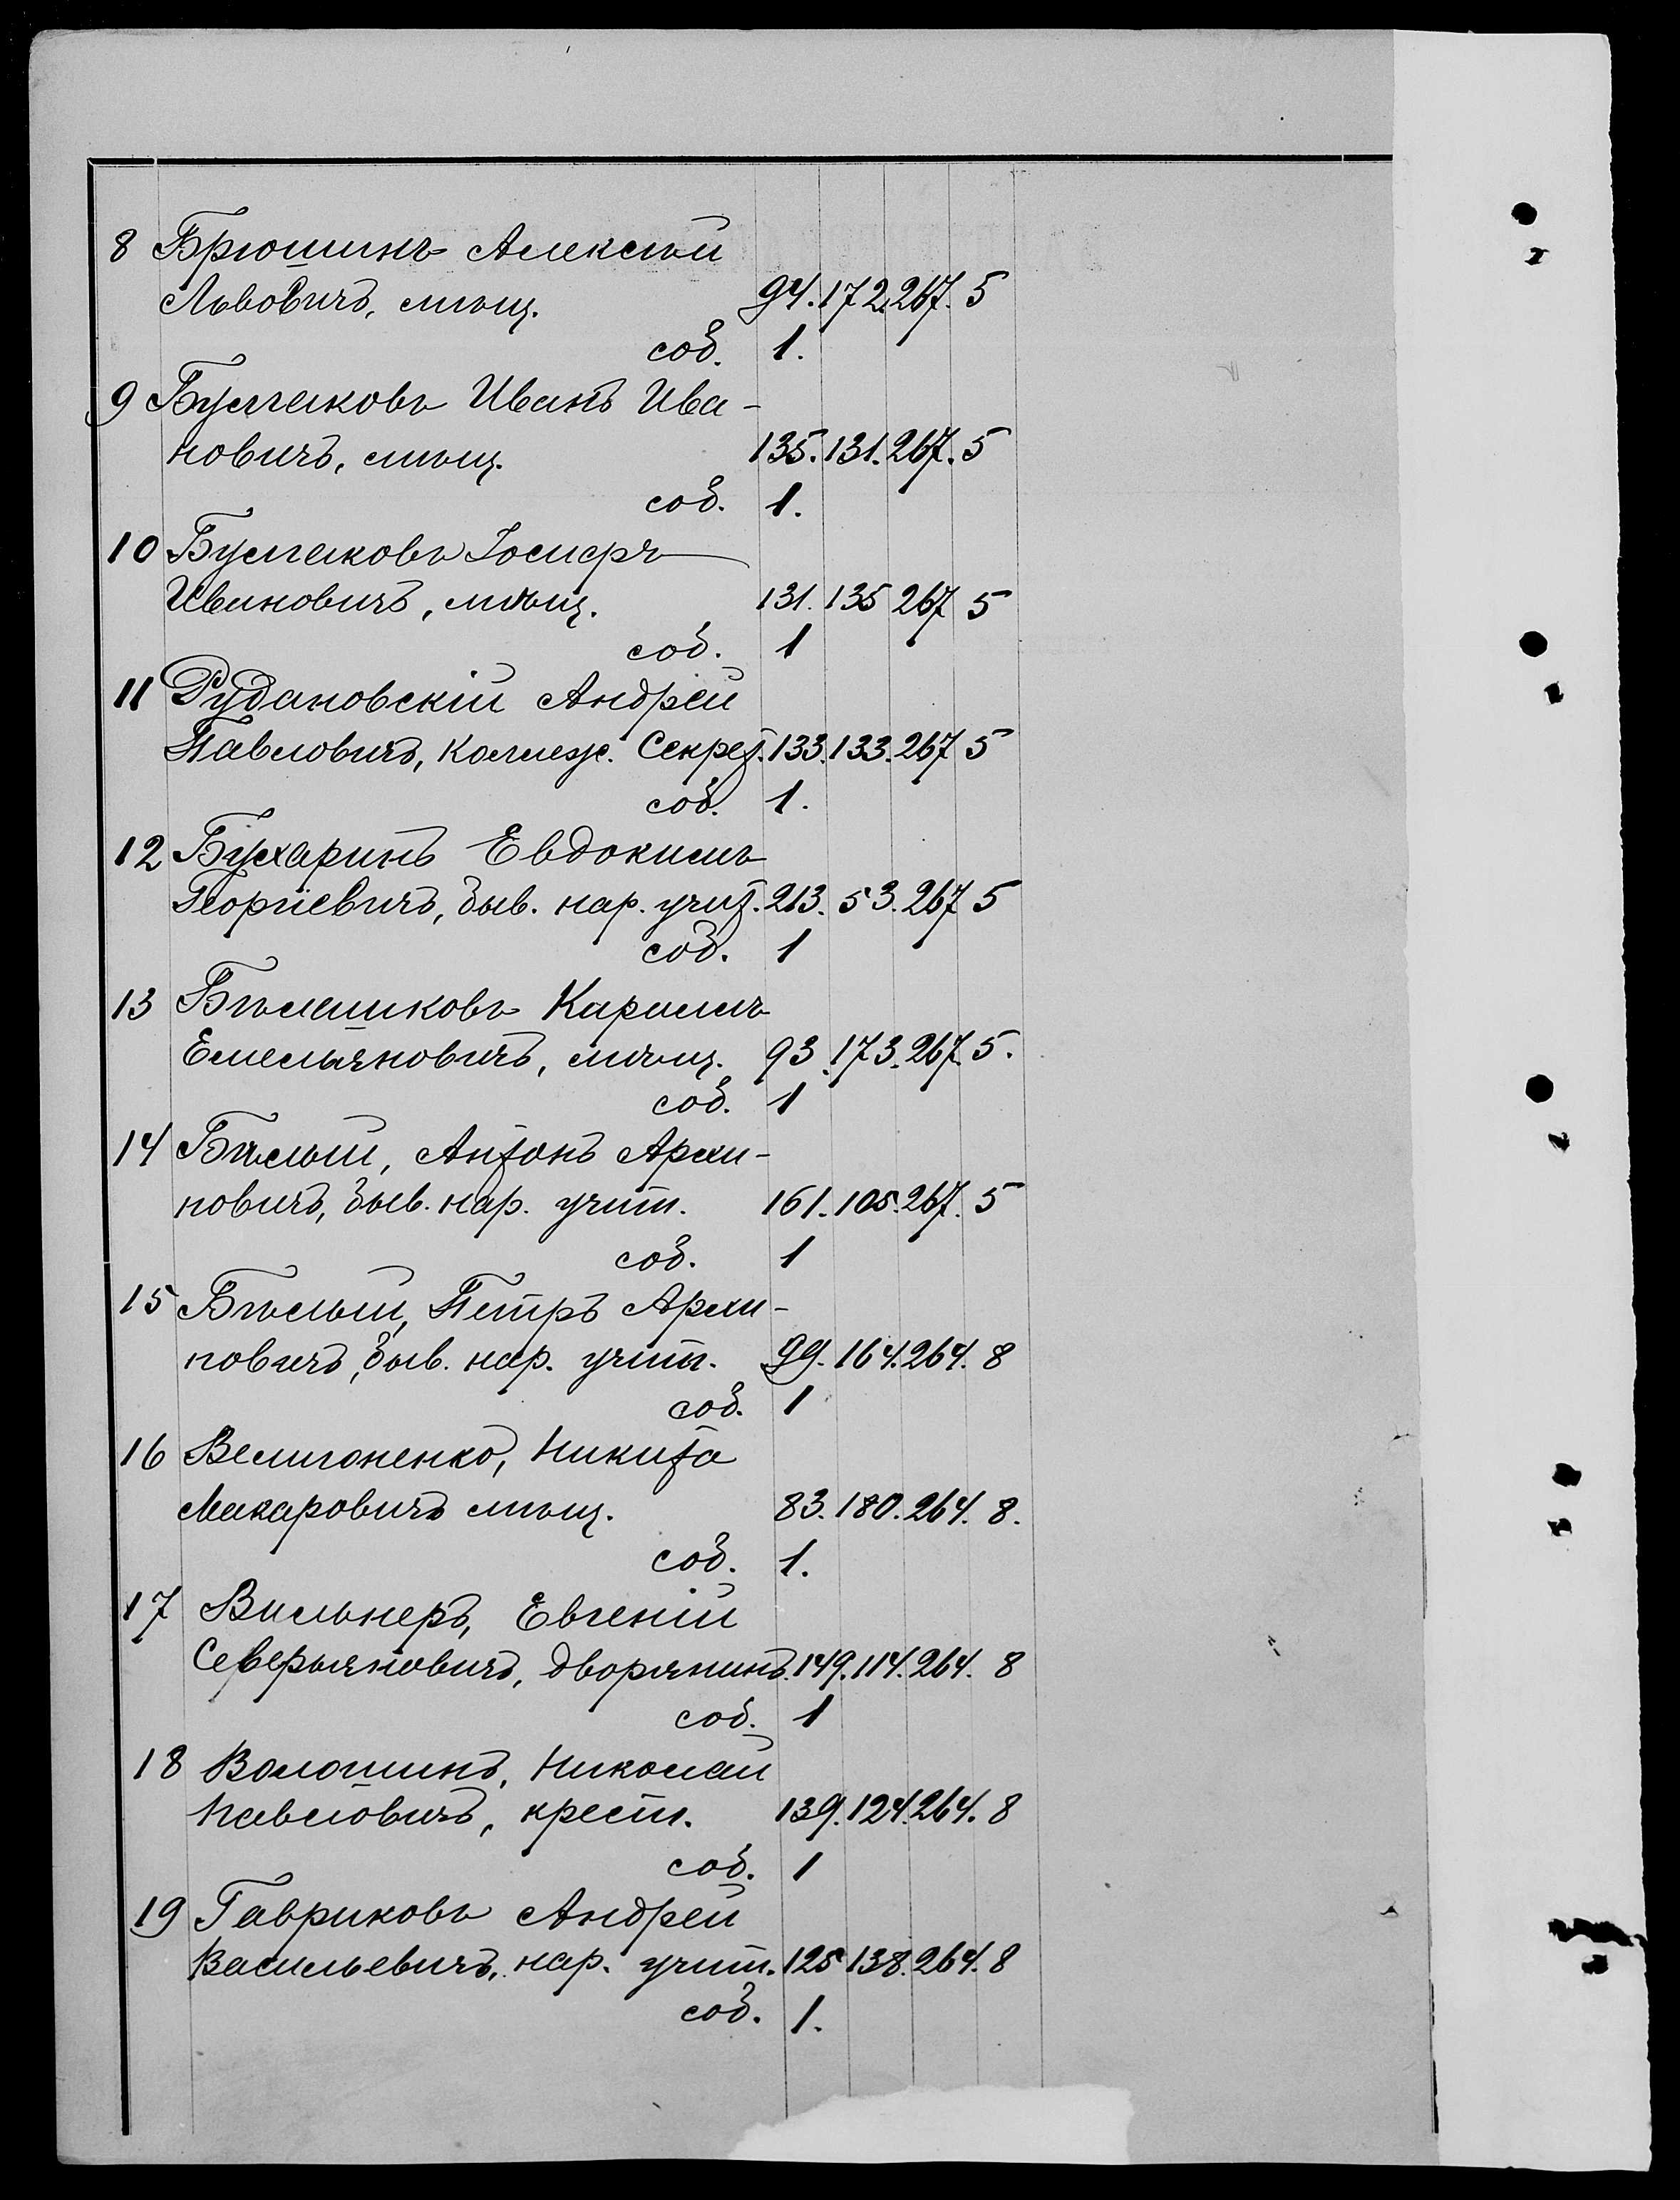 8 Брюшинъ Алексѣй
Львовичъ, мѣщ. 94. 172. 267. 5
соб. 1.
9 Булгаковъ Иванъ Ива-
новичъ, мѣщ. 135. 131. 267. 5
соб. 1.
10 Булгаковъ Іосифъ
Ивановичъ, мѣщ. 131. 135 267 5
соб. 1
11 Рудановскій Андрей
Павловичъ, Коллеж. Секрет. 133. 133. 267 5
соб. 1.
12 Бухаринъ Евдокимъ
Георгіевичъ, быв. нар. учит. 213. 53. 267 5
соб. 1
13 Бѣлашковъ
Емельяновичъ, мѣщ. 93. 173. 267. 5.
соб. 1
14 Бѣлый, Антонъ Архи-
повичъ, быв. нар. учит. 161. 105. 267. 5
соб. 1
15 Бѣлый, Петръ Архи-
повичъ, быв. нар. учит. 99. 164. 264. 8
соб. 1
16 Велигоненко, Никита
Макаровичъ мѣщ. 83. 180. 264. 8.
соб. 1.
17 Вильнеръ, Евгеній
Северьяновичъ, дворянинъ. 149. 114. 264. 8
соб. 1
18 Волошинъ, Николай
Павловичъ, крест. 139. 124. 264. 8
соб. 1
19 Гавриковъ Андрей
Васильевичъ, нар. учит. 125 138. 264. 8
соб. 1.